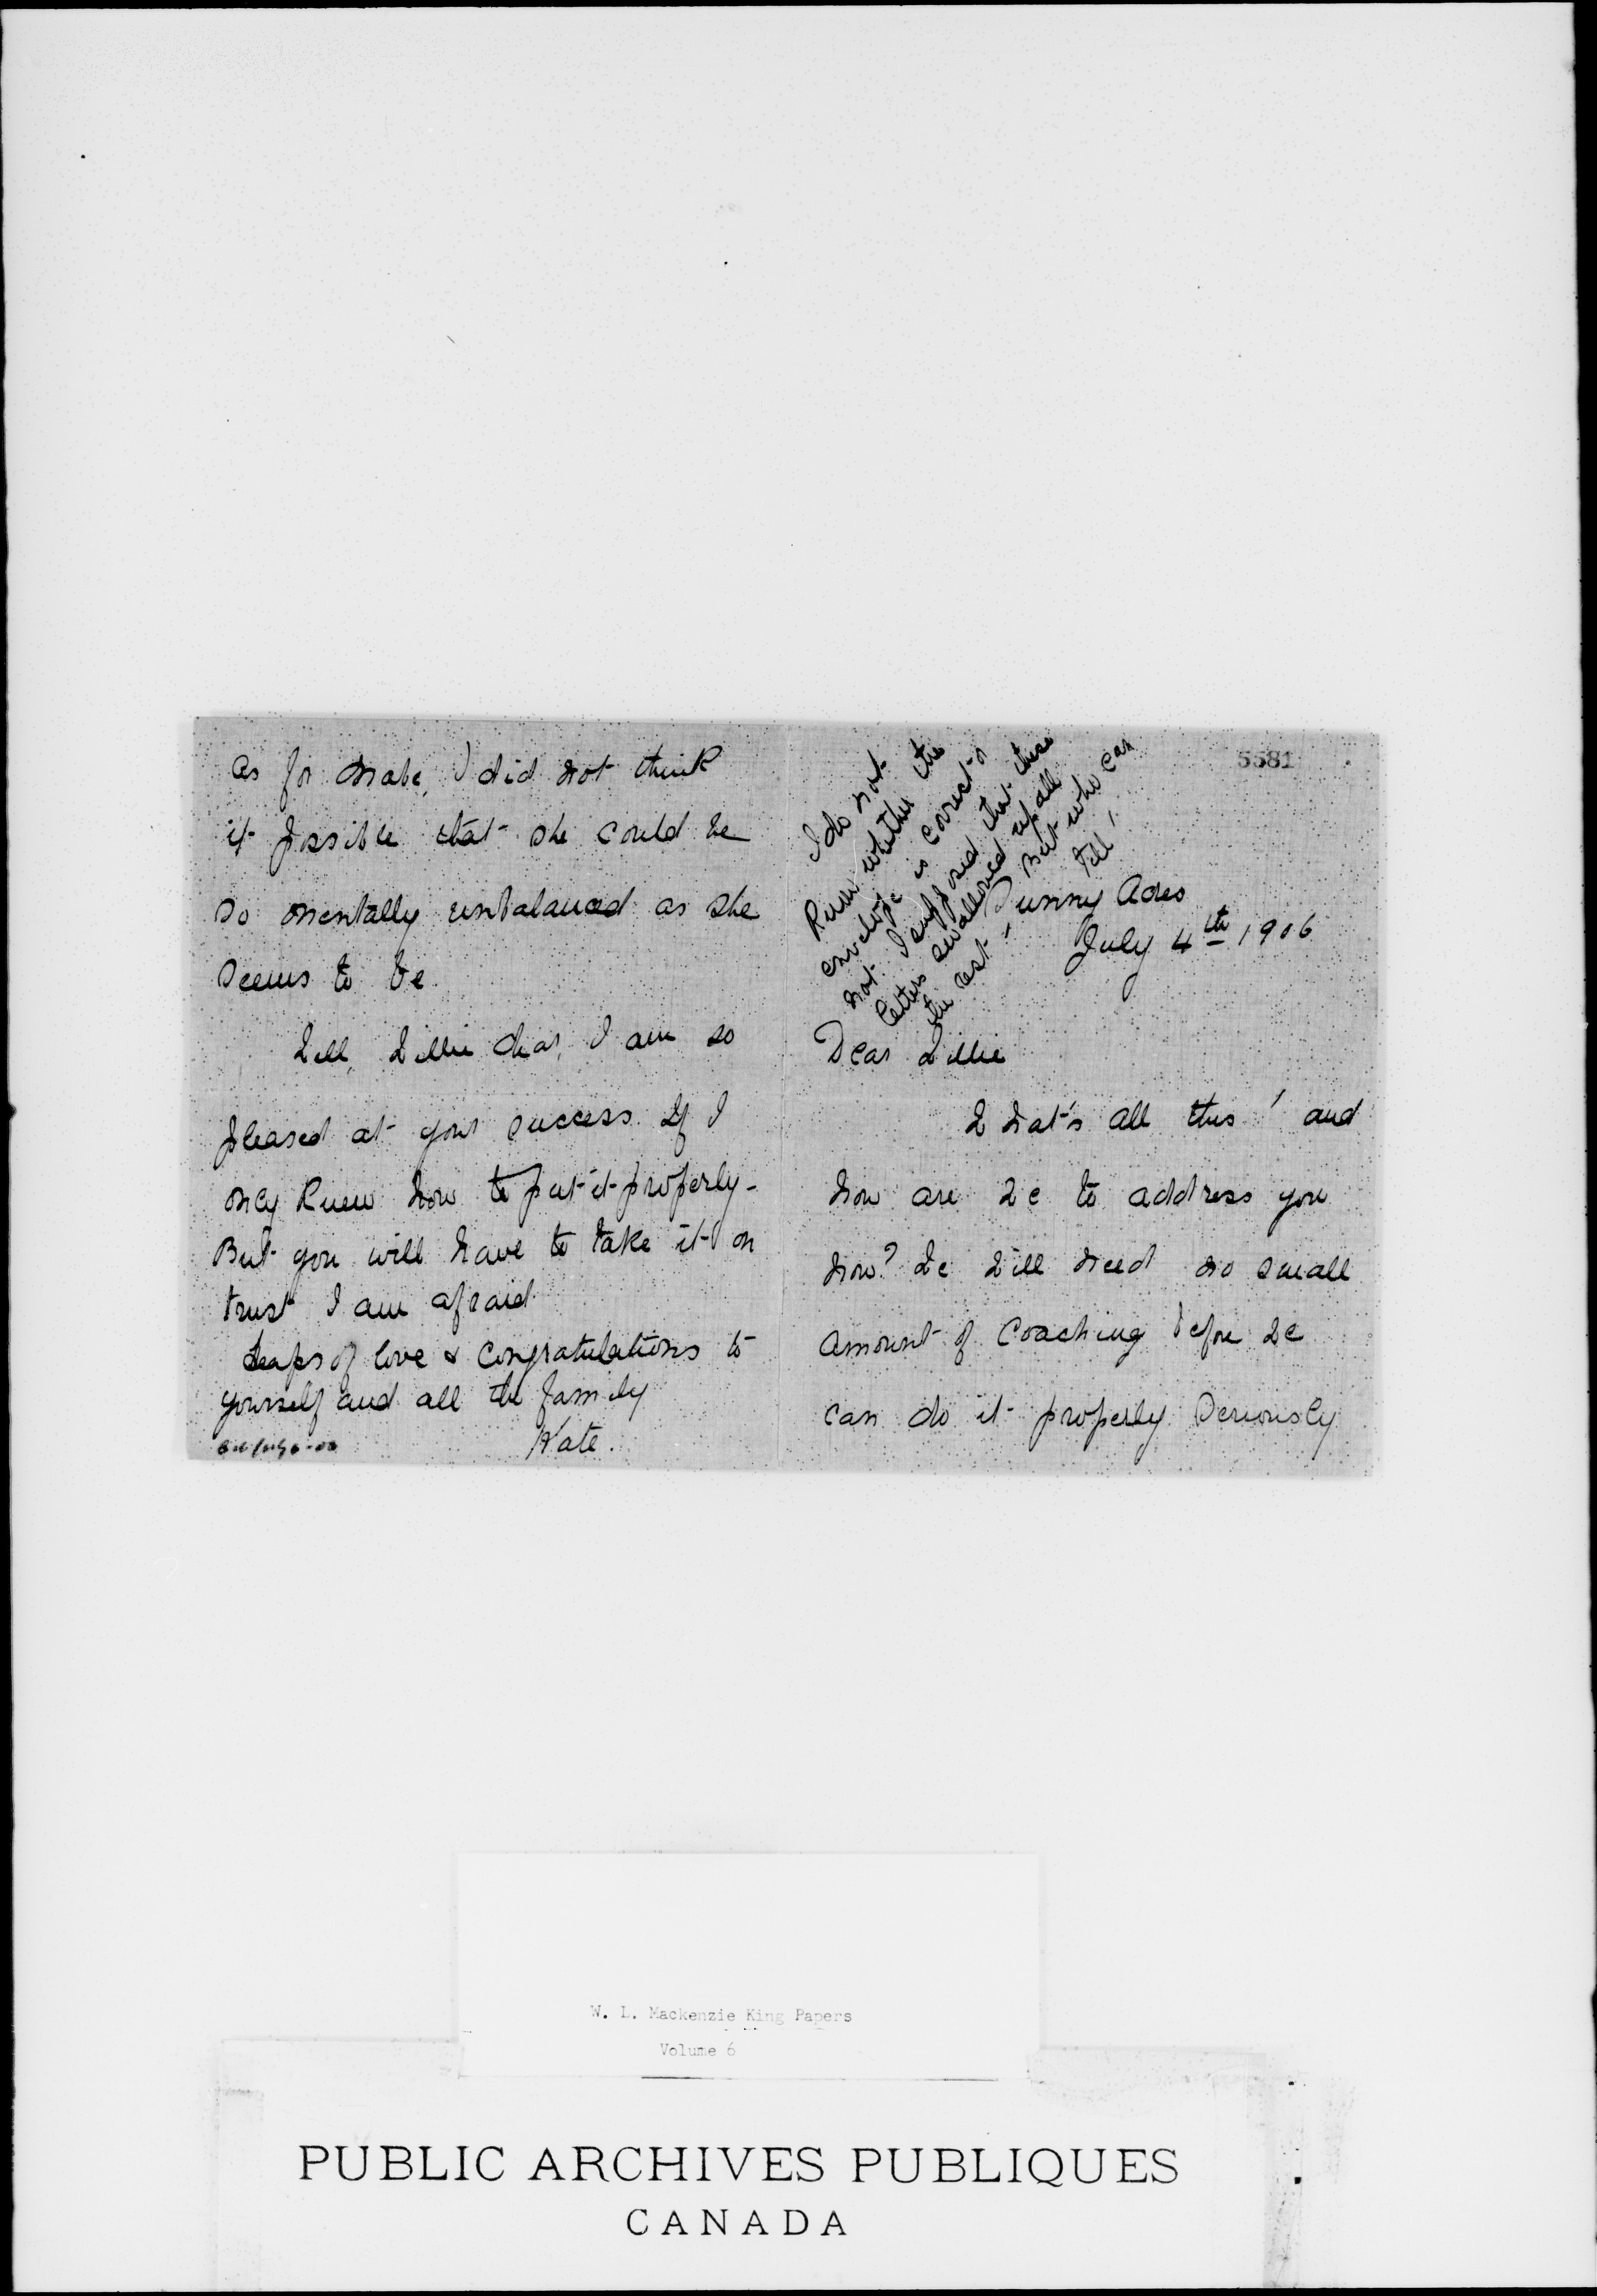 As for Mabe, I did not think
it possible that she could be
so mentally unbalanced as she
seems to be.
Well, Willie dear, I am so
pleased at your success. If I
only knew how to put it properly -
But you will have to take it on
trust I am afraid
Heaps of love & congratulations to
yourself and all the family
Kate.
5581
I do not
know whether the
envelope is correct or
not. I supposed that these
letters swallowed up all
the rest - But who can
tell!
Sunny Acres
July 4th 1906
Dear Willie
What's all this! and
how are we to address you
now? We will need no small
amount of coaching before we
can do it properly. Seriously
W. L. Mackenzie King Papers
Volume 6
PUBLIC ARCHIVES PUBLIQUES
CANADA